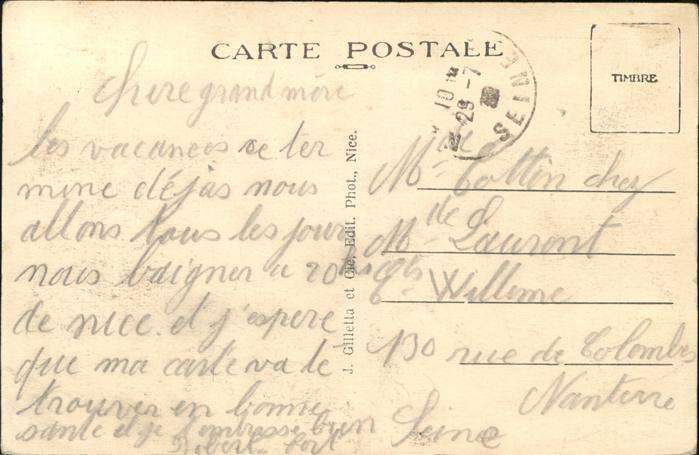 CARTE POSTALE
TIMBRE
10
29 -7
SEINE
chere grand mère
les vacances ce ter
mine déjàs nous
allons tous les jours
nous baigner a 20
de nice. et j'espere
que ma carte va te
trouver en bonne
santé et je t'embrasse bien
Robert
J. Gilletta et Cie, Edit. Phot., Nice.
Mme Cottin chez
Mde Laurent
Willeme
130 rue de Colombes
Nanterre
Seine